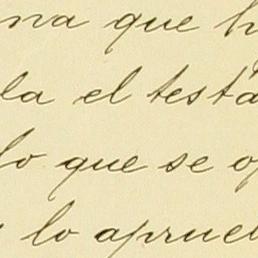 na que h
la el testa
lo que se op
lo aprue